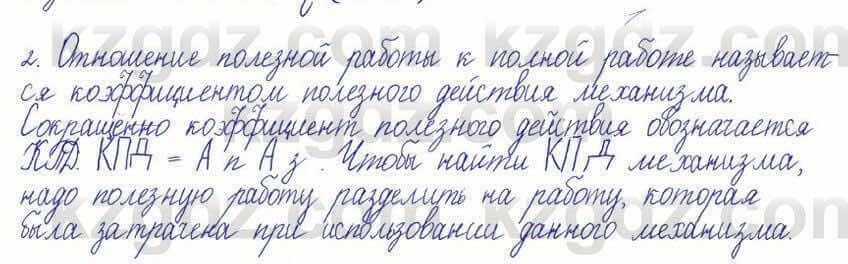 2. Отношение полезной работы к полной работе называет-
ся коэффициентом полезного действия механизма.
Сокращённо коэффициент полезного действия обозначается
КПД. КПД = А п А з . Чтобы найти КПД механизма,
надо полезную работу разделить на работу, которая
была затрачена при использовании данного механизма.